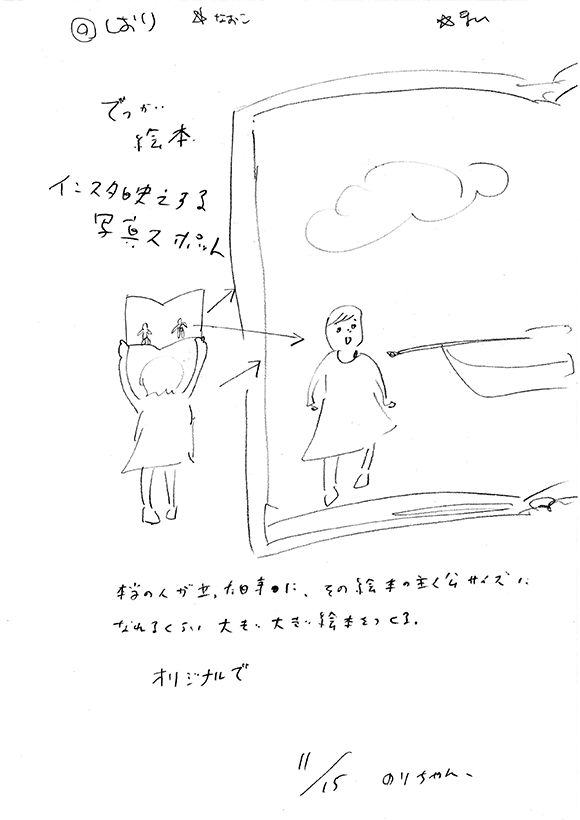 しおり ☆なおこ ☆まい
でっかい
絵本
インスタ映えする
写真スポット
本当の人が立った時に、その絵本の主人公サイズに
なれるくらい 大きい大きい絵本をつくる。
オリジナルで
11/15 のりちゃん、